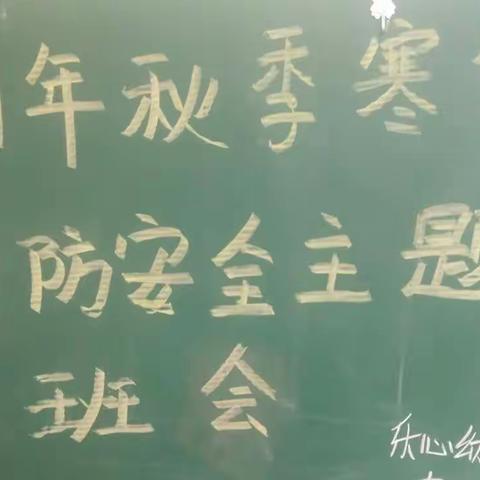 年秋季寒
防安全主题
班会
乐心幼